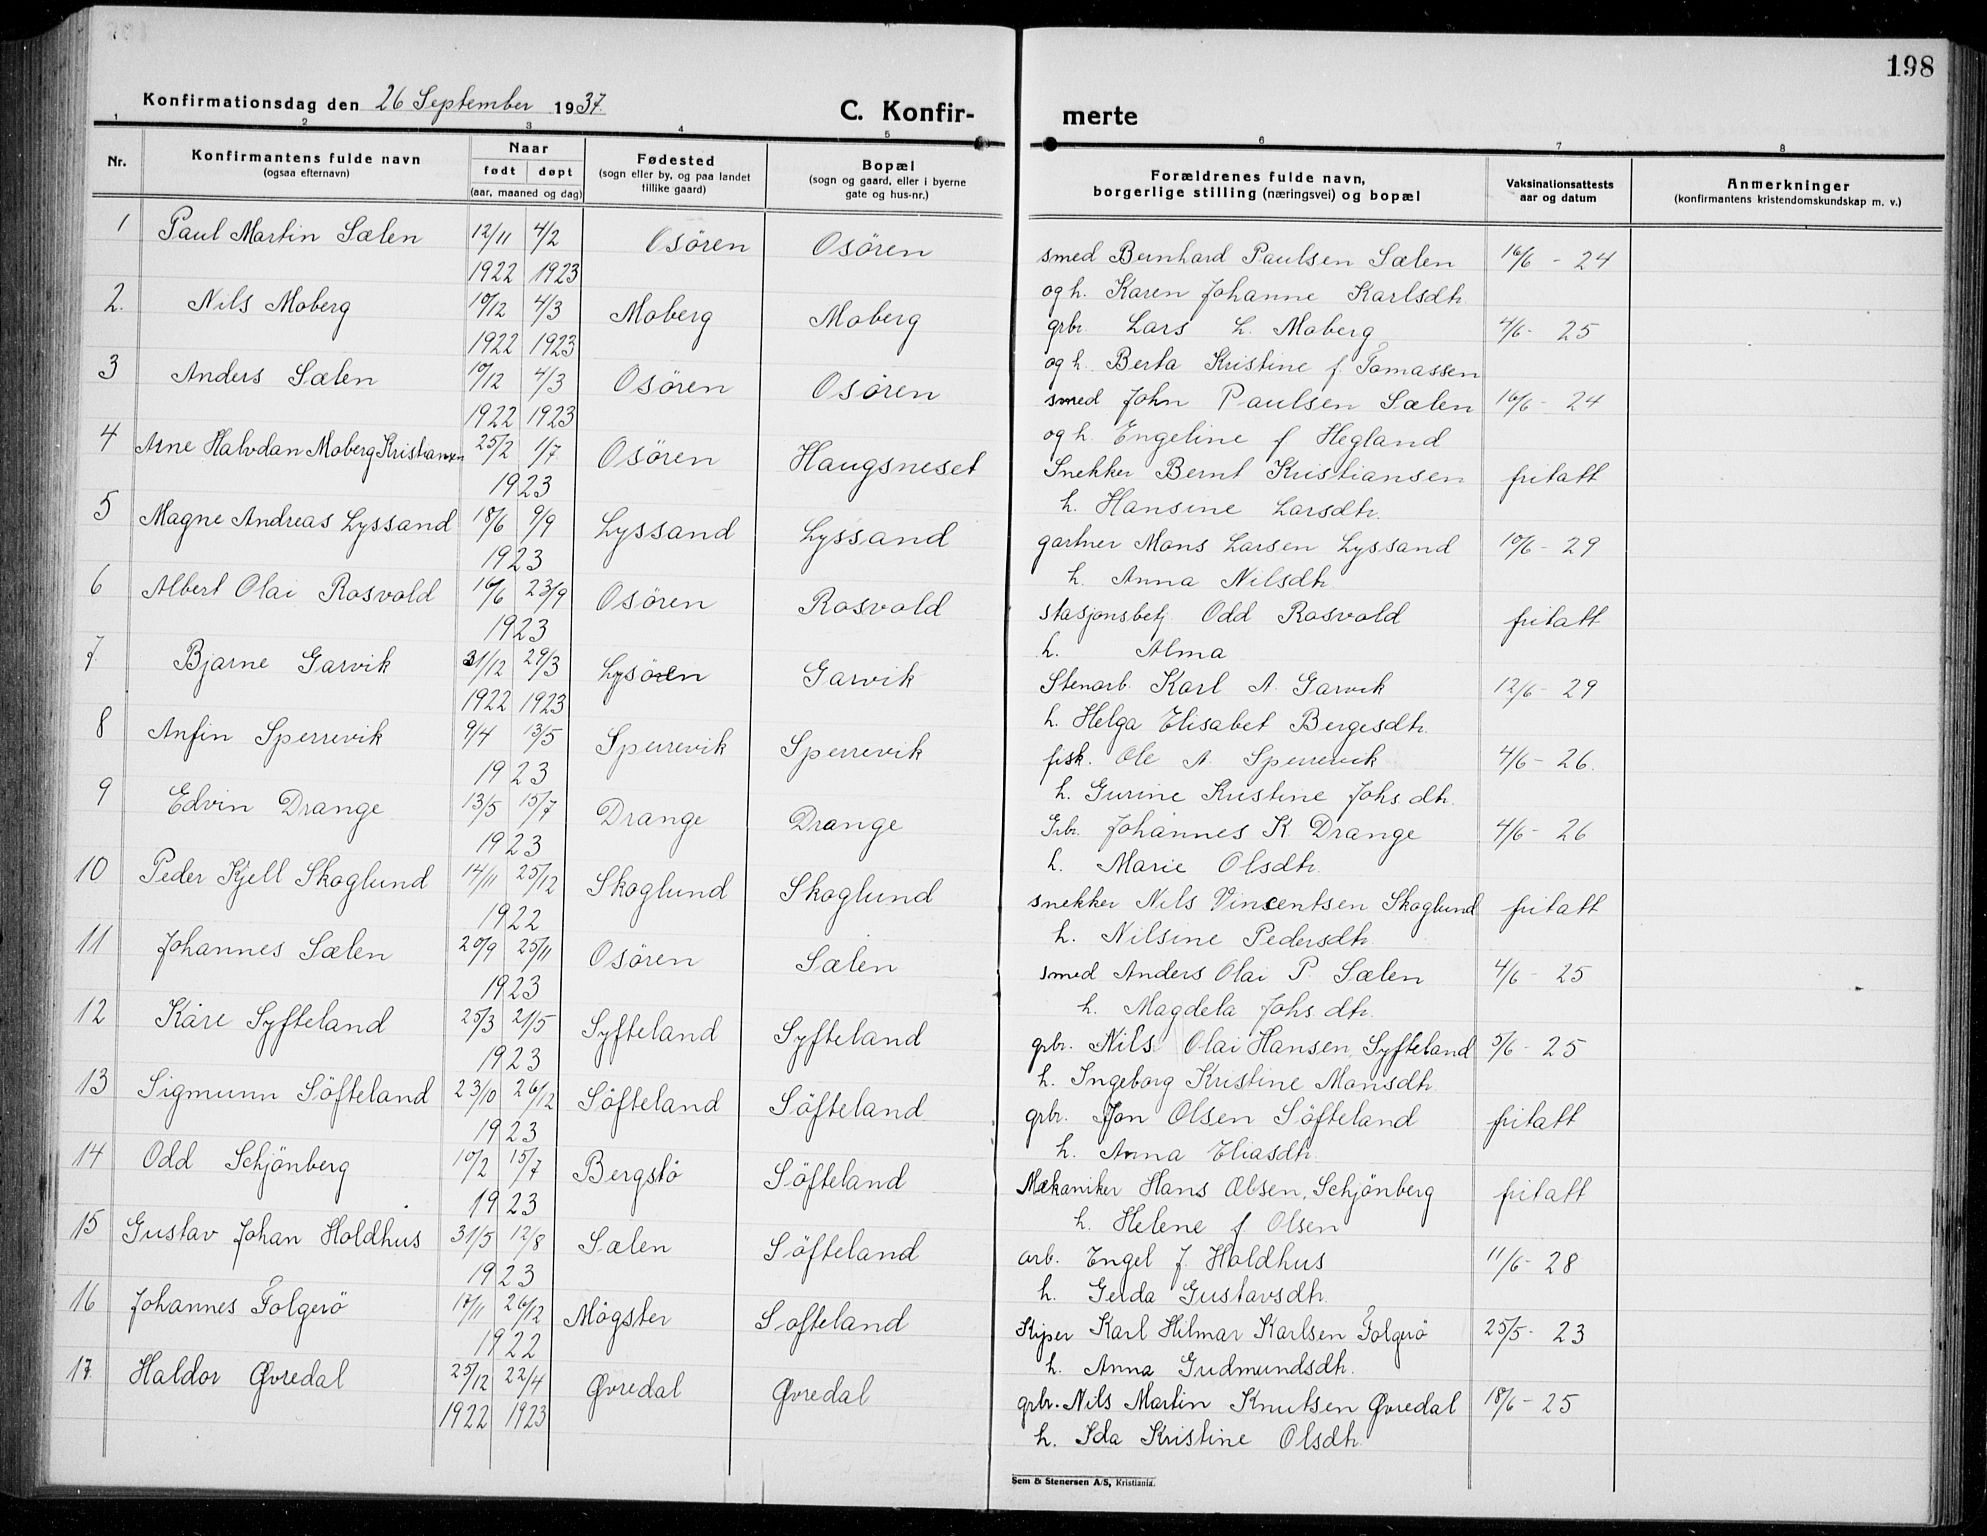 198
Konfirmationsdag den 26 September 1937.
C. Konfir- merte
1 2 3 4 5 6 7 8
Nr. Konfirmantens fulde navn (ogsaa efternavn) Naar født døpt (aar, maaned og dag) Fødested (sogn eller by, og paa landet tillike gaard) Bopæl (sogn og gaard, eller i byerne gate og hus-nr.) Forældrenes fulde navn, borgerlige stilling (næringsvei) og bopæl Vaksinationsattests aar og datum Anmerkninger (konfirmantens kristendomskundskap m. v.)
1 Paul Martin Sælen 12/11 4/2 Osören Osören smed Bernhard Paulsen Sælen 16/6 - 24
1922 1923 og h. Karen Johanne Karlsdtr.
2. Nils Moberg 10/12 4/3 Moberg Moberg grbr. Lars L. Moberg 4/6 - 25
1922 1923 og h. Berta Kristine f. Tomassen
3 Anders Sælen 10/12 4/3 Osören Osören smed John Paulsen Sælen 16/6 - 24
1922 1923 og h. Engeline f Hegland
4 Arne Halvdan Moberg Kristiansen 25/2 1/7 Osören Haugsneset Snekker Bernt Kristiansen fritatt
1923 h. Hansine Larsdtr.
5 Magne Andreas Lyssand 18/6 9/9 Lyssand Lyssand gartner Mons Larsen Lyssand 10/6 - 29
1923 h. Anna Nilsdtr.
6 Albert Olai Rosvold 16/6 23/9 Osören Rosvold stasjonsbetj Odd Rosvold fritatt
1923 h. Alma
7 Bjarne Garvik 31/12 29/3 Lysören Garvik Stenarb. Karl A. Garvik 12/6 - 29
1922 1923 h. Helga Elisabet Bergesdtr.
8 Anfin Sperrevik 9/4 13/5 Sperrevik Sperrevik fisk. Ole A. Sperrevik 4/6 - 26.
1923 h. Gurine Kristine Johs.dtr.
9 Edvin Drange 13/5 15/7 Drange Drange Grbr. Johannes K. Drange 4/6 - 26
1923 h. Marie Olsdtr.
10 Peder Kjell Skoglund 14/11 25/12 Skoglund Skoglund snekker Nils Vincentsen Skoglund fritatt
1922 h. Nilsine Pedersdtr.
11 Johannes Sælen 20/9 25/11 Osören Sælen smed Anders Olai P. Sælen 4/6 - 25
1923 h. Magdela Johs.dtr.
12 Kåre Syfteland 25/3 21/5 Syfteland Syfteland grbr. Nils Olai Hansen Syfteland 5/6 - 25
1923 h. Ingeborg Kristine Monsdtr.
13 Sigmunn Söfteland 23/10 26/12 Söfteland Söfteland grbr. Jon Olsen Söfteland fritatt
1923 h. Anna Eliasdtr.
14 Odd Schjönberg 10/2 15/7 Bergstö Söfteland Mekaniker Hans Olsen, Schjönberg fritatt
1923 h. Helene f Olsen
15 Gustav Johan Holdhus 31/5 12/8 Sælen Söfteland arb. Engel J. Holdhus 11/6 - 28
1923 h. Gerda Gustavsdtr.
16 Johannes Folgerö 17/11 26/12 Mögster Söfteland Skiper Karl Hilmar Karlsen Folgerö 25/5 - 23
1922 h. Anna Gudmundsdtr.
17 Haldor Øvredal 25/12 22/4 Øvredal Øvredal grbr. Nils Martin Knutsen Øvredal 18/6 - 25
1922 1923 h. Ida Kristine Olsdtr.
Sem & Stenersen A/S, Kristiania.